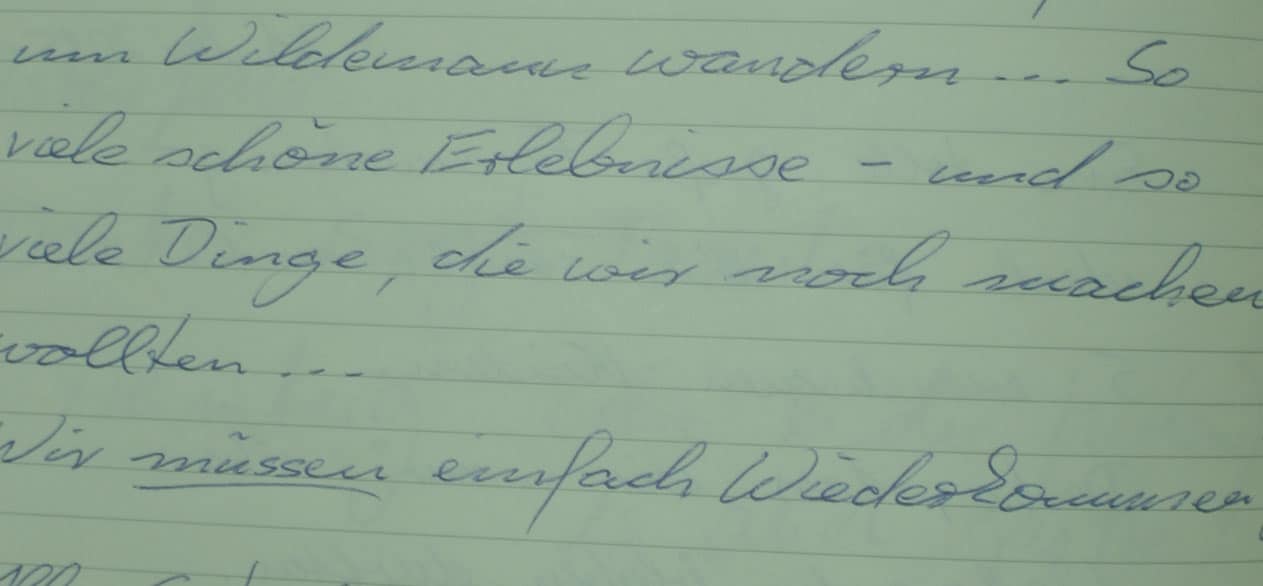 um Wildemann wandern ... So
viele schöne Erlebnisse - und so
viele Dinge, die wir noch machen
wollten ...
Wir müssen einfach Wiederkommen,